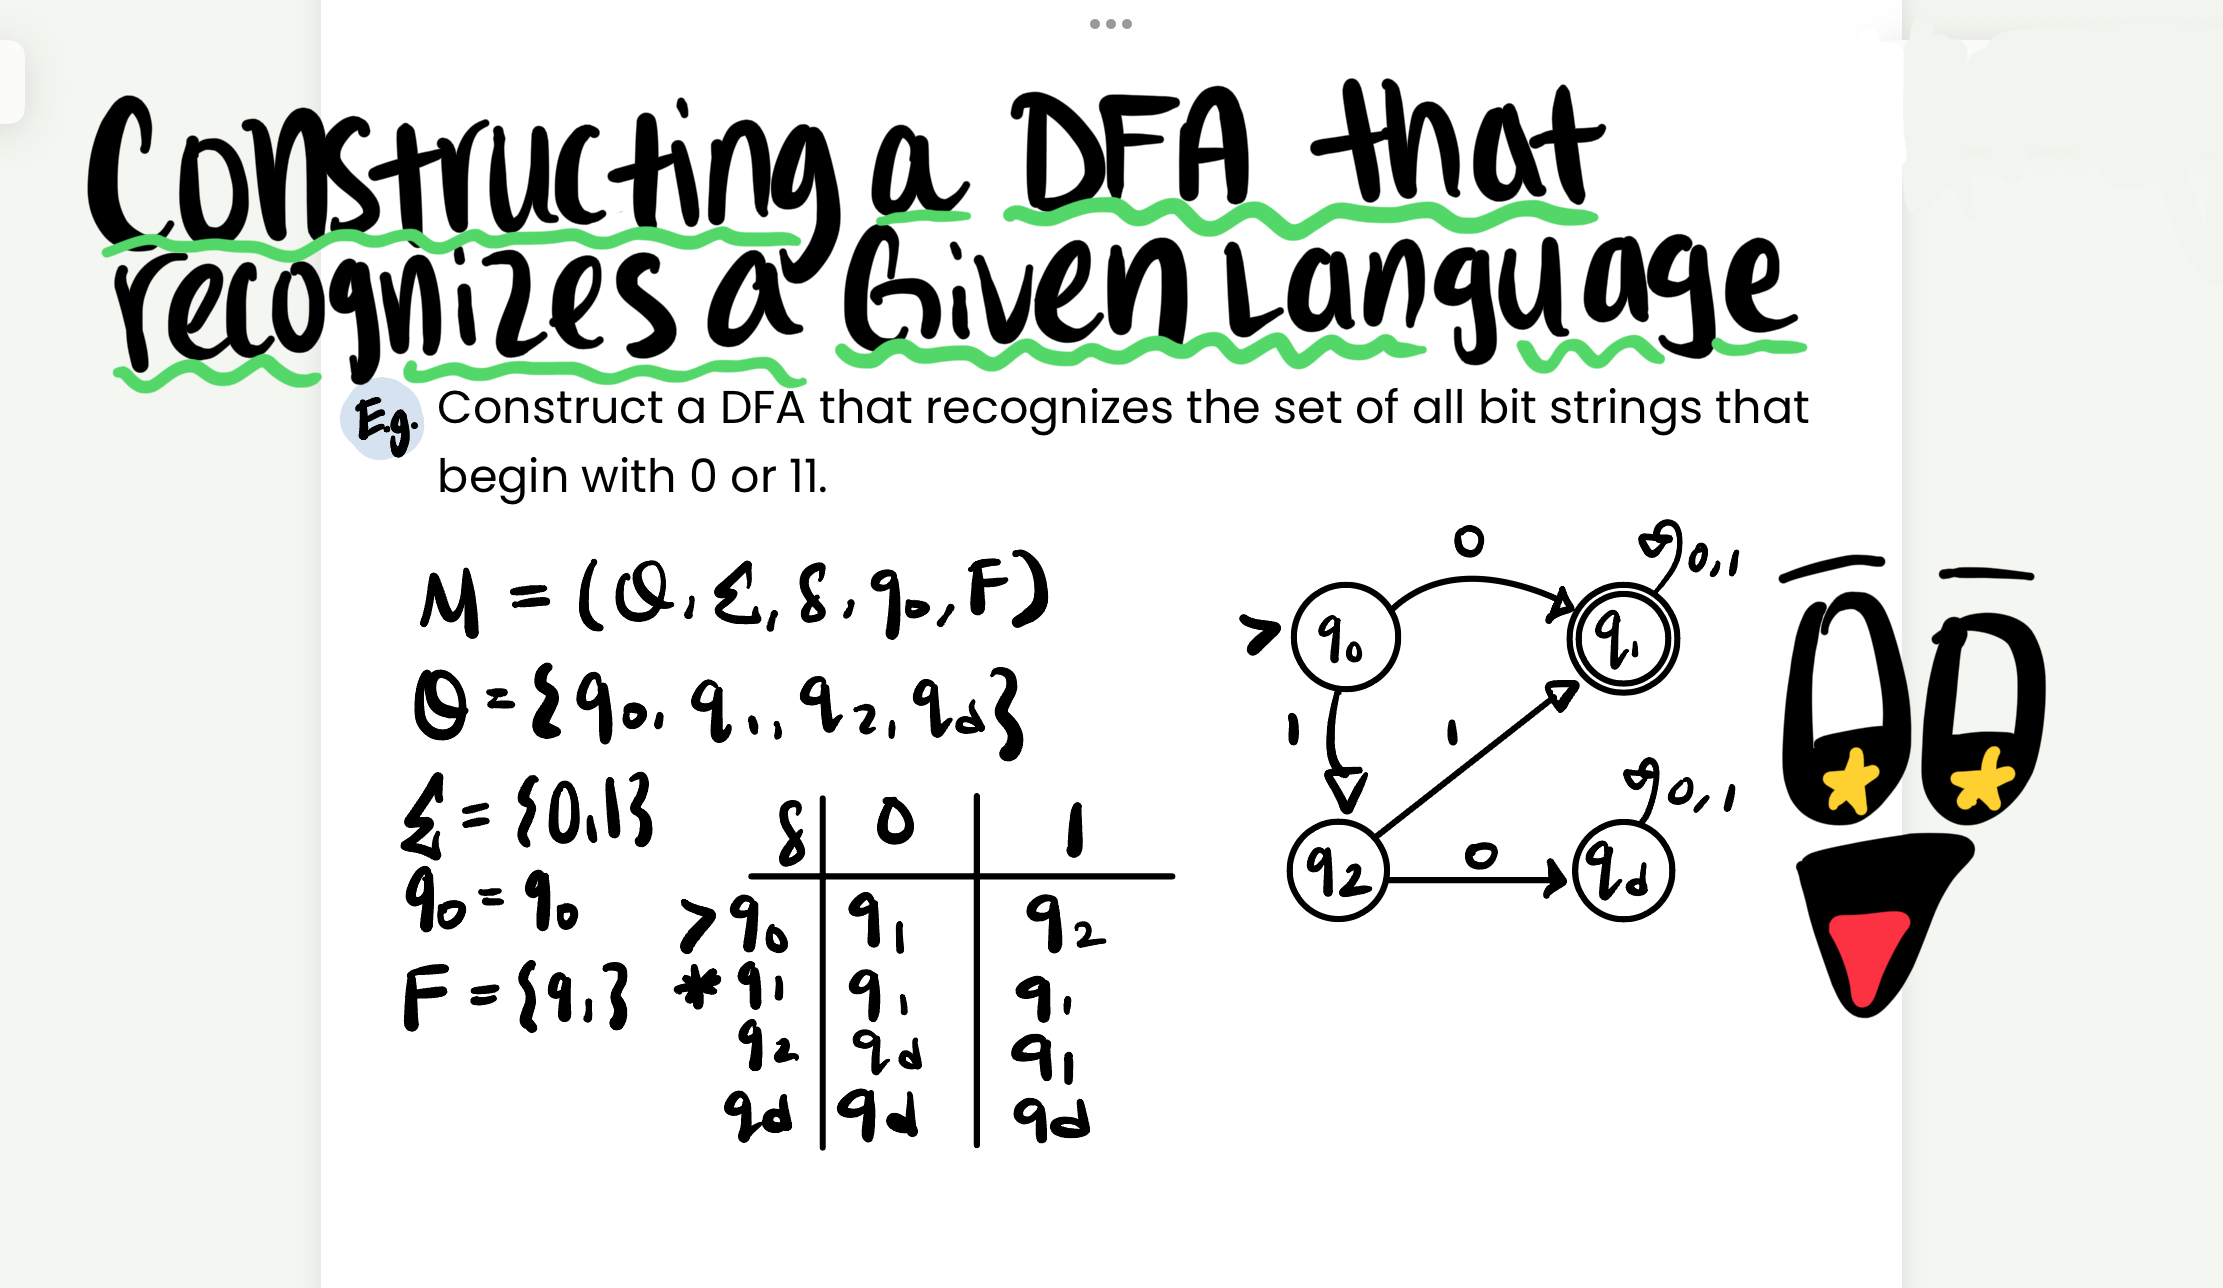 Constructing a DFA that
recognizes a Given Language
E.g. Construct a DFA that recognizes the set of all bit strings that
begin with 0 or 11.
M = (Q, Σ, δ, q0, F)
Q = {q0, q1, q2, qd}
Σ = {0,1}
q0 = q0
F = {q1}
δ 0 1
>q0 q1 q2
*q1 q1 q1
q2 qd q1
qd qd qd
0
0,1
> q0 q1
1 1
0,1
q2 0 qd